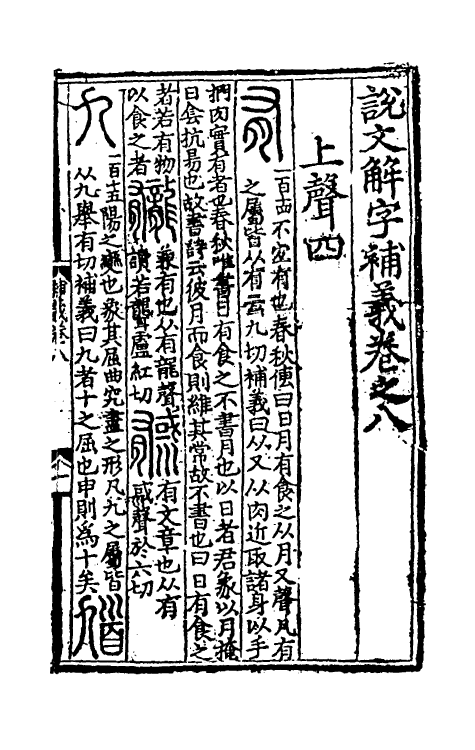 說文解字補義卷之八
上聲四
有 一百十四 不宜有也春秋傳曰日月有食之从月又聲凡有
之屬皆从有云九切補義曰从又从肉近取諸身以手
捫肉實有者也春秋唯書日有食之不書月也以日者君象以月掩
日侌抗昜也故書詩云彼月而食則維其常故不書也曰日有食之
者若有物
以食之者 龓 兼有也从有龍聲
讀若聾盧紅切 戫 有文章也从有
惑聲於六切
九 一百十五 陽之變也象其屈曲究盡之形凡九之屬皆
从九舉有切補義曰九者十之屈也申則為十矣 馗
補義卷八
一